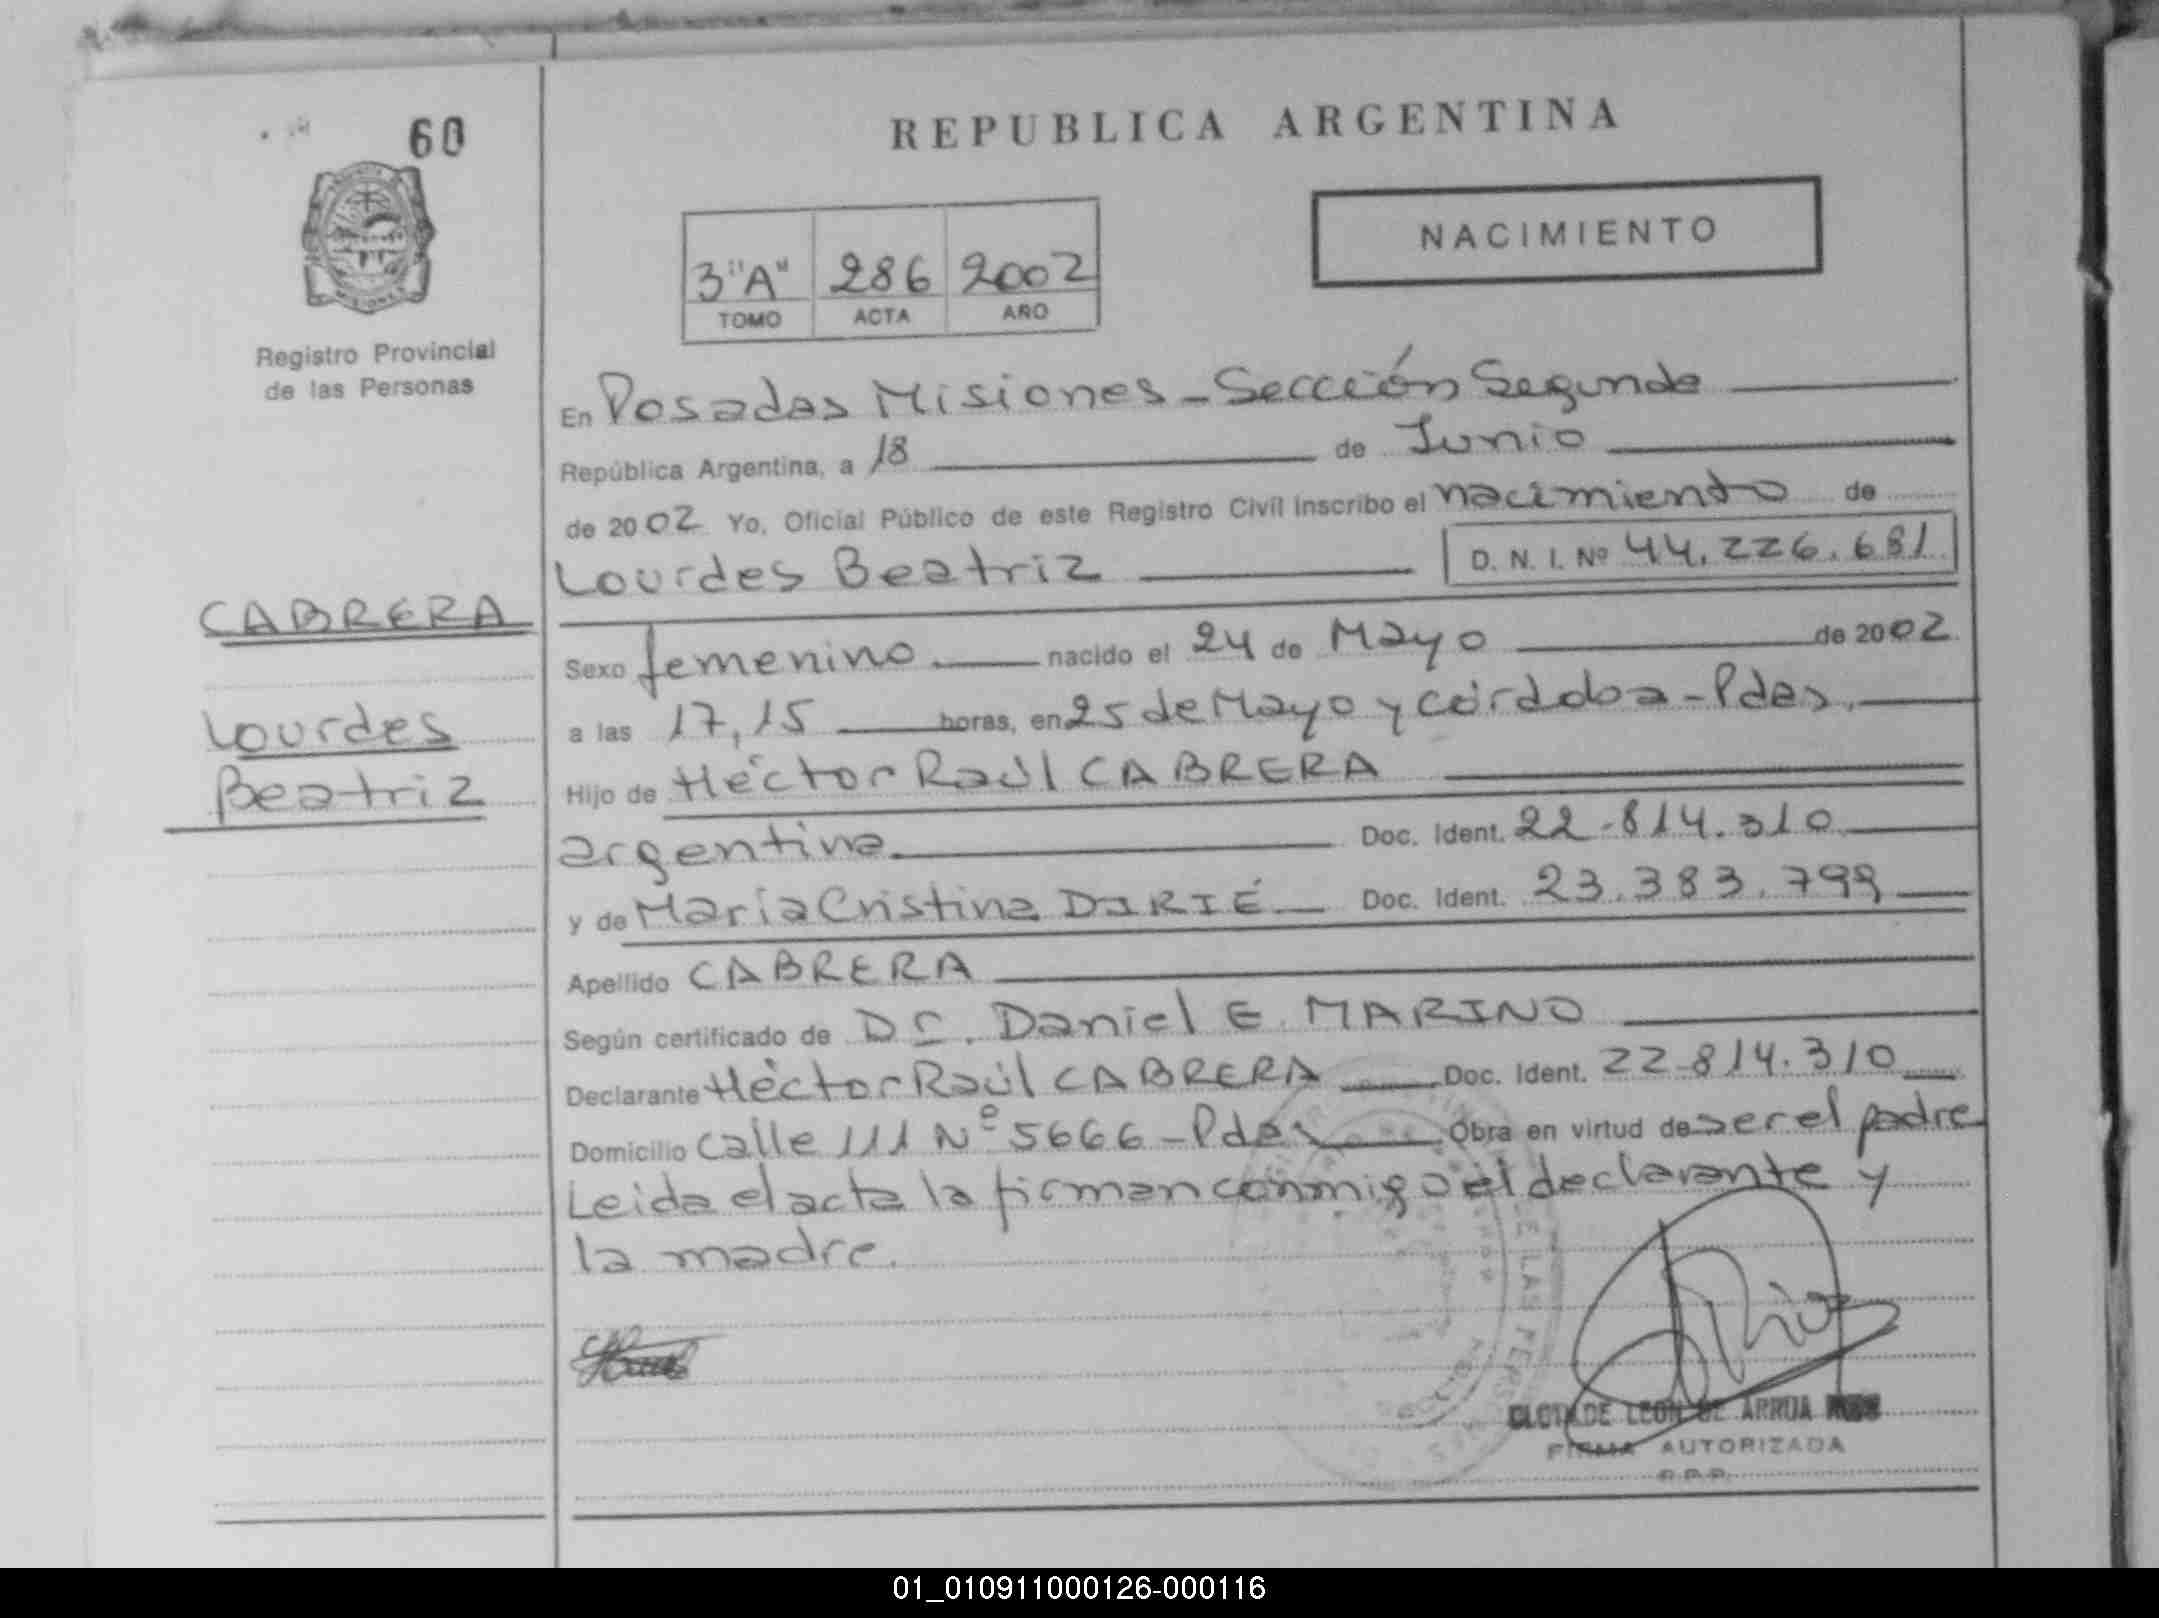 60
REPUBLICA ARGENTINA
NACIMIENTO
3"A" 286 2002
TOMO ACTA AÑO
Registro Provincial
de las Personas
En Posadas Misiones - Sección Segunda
República Argentina, a 18 de Junio
de 2002 Yo, Oficial Público de este Registro Civil inscribo el nacimiento de
Lourdes Beatriz D. N. I. Nº 44.226.681
CABRERA
Lourdes
Beatriz
Sexo femenino nacido el 24 de Mayo de 2002
a las 17,15 horas, en 25 de Mayo y córdoba - Pdas.
Hijo de Héctor Raúl CABRERA
argentina Doc. Ident. 22.814.310
y de María Cristina DIRIÉ Doc. Ident. 23.383.799
Apellido CABRERA
Según certificado de Dr. Daniel E. MARINO
Declarante Héctor Raúl CABRERA Doc. Ident. 22.814.310
Domicilio calle 111 Nº 5666 - Pdas Obra en virtud de ser el padre
Leida el acta la firman conmigo el declarante y
la madre.
CLOTILDE LEON DE ARRUA
FIRMA AUTORIZADA
R.P.P.
01_010911000126-000116